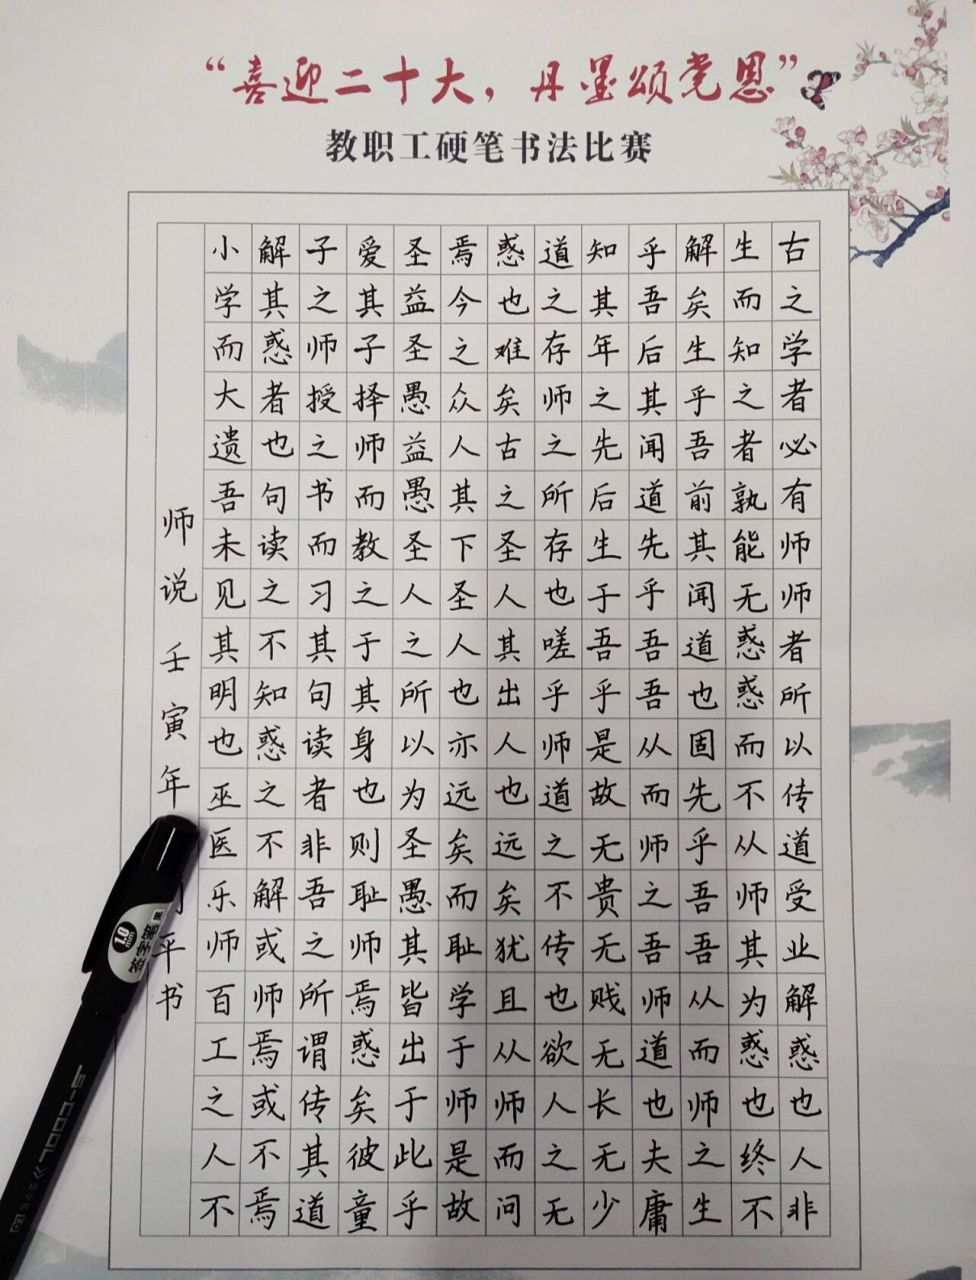 “喜迎二十大，丹墨颂党恩”
教职工硬笔书法比赛
古之学者必有师师者所以传道受业解惑也人非
生而知之者孰能无惑惑而不从师其为惑也终不
解矣生乎吾前其闻道也固先乎吾吾从而师之生
乎吾后其闻道先乎吾吾从而师之吾师道也夫庸
知其年之先后生于吾乎是故无贵无贱无长无少
道之存师之所存也嗟乎师道之不传也欲人之无
惑也难矣古之圣人其出人也远矣犹且从师而问
焉今之众人其下圣人也亦远矣而耻学于师是故
圣益圣愚益愚圣人之所以为圣愚其皆出于此乎
爱其子择师而教之于其身也则耻师焉惑矣彼童
子之师授之书而习其句读者非吾之所谓传其道
解其惑者也句读之不知惑之不解或师焉或不焉
小学而大遗吾未见其明也巫医乐师百工之人不
师说壬寅年平书
1.0mm
签字笔